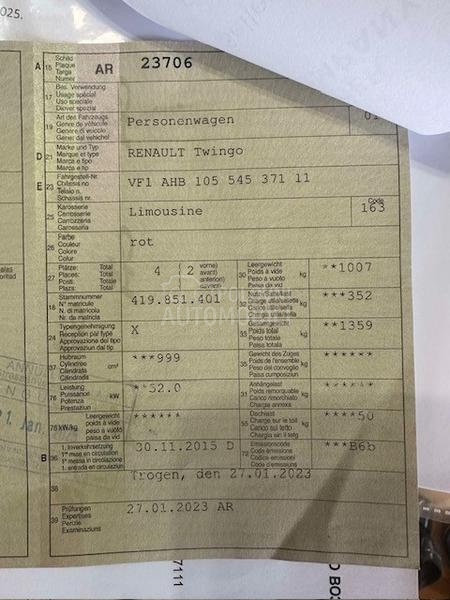 2025.
A 15 Schild Plaque Targa Numer AR 23706
17 Bes. Verwendung Usage spécial Uso speciale
19 Art des Fahrzeugs Genre de véhicule Genere di veicolo Personenwagen 01
D 21 Marke und Typ Marque et type Marca e tipo Marca e tip RENAULT Twingo
E 23 Fahrgestell-Nr. Châssis no Telaio n. Schassis nr. VF1 AHB 105 545 371 11
25 Karosserie Carrosserie Carrozzeria Carossa Limousine Code 163
26 Farbe Couleur Colore Color rot
27 Plätze: Total Places: Total Posti: Totale Plazs: Total 4 2 vorne/ avant/ anteriori/ davant/
30 Leergewicht Poids à vide Peso a vuoto Paisa da vid kg **1007
18 Stammnummer N° matricule N. di matricola Nr. da matricla 419.851.401
32 kg ***352
24 Typengenehmigung Réception par type Approvazione del tipo Approvaziun dal tip X
33 Gesamtgewicht Poids total Peso totale Paisa totala kg **1359
37 Hubraum Cylindrée Cilindrata Cilindrada cm³ ***999
35 Gewicht des Zuges Poids de l'ensemble Peso del convoglio Paisa cumposiziun kg ******
76 Leistung Puissance Potenza Prestaziun kW **52.0
31 Anhängelast Poids remorquable Carico rimorchiato Chargia annexa kg ******
78 kW/kg Leergewicht poids à vide peso a vuoto paisa da vid ******
55 Dachlast Charge sur le toit Carico sul tetto Chargia sin il tetg kg ****50
B 36 1. Inverkehrsetzung 1re mise en circulation 1a messa in circolazione 1. entrada en circulaziun 30.11.2015 D
72 Emissionscode Code émissions Codice emissioni Code d'emissiuns ***B6b
38 Trogen, den 27.01.2023
39 Prüfungen Expertises Perizie Examinaziuns 27.01.2023 AR
1. Jan.
7111
O BOS